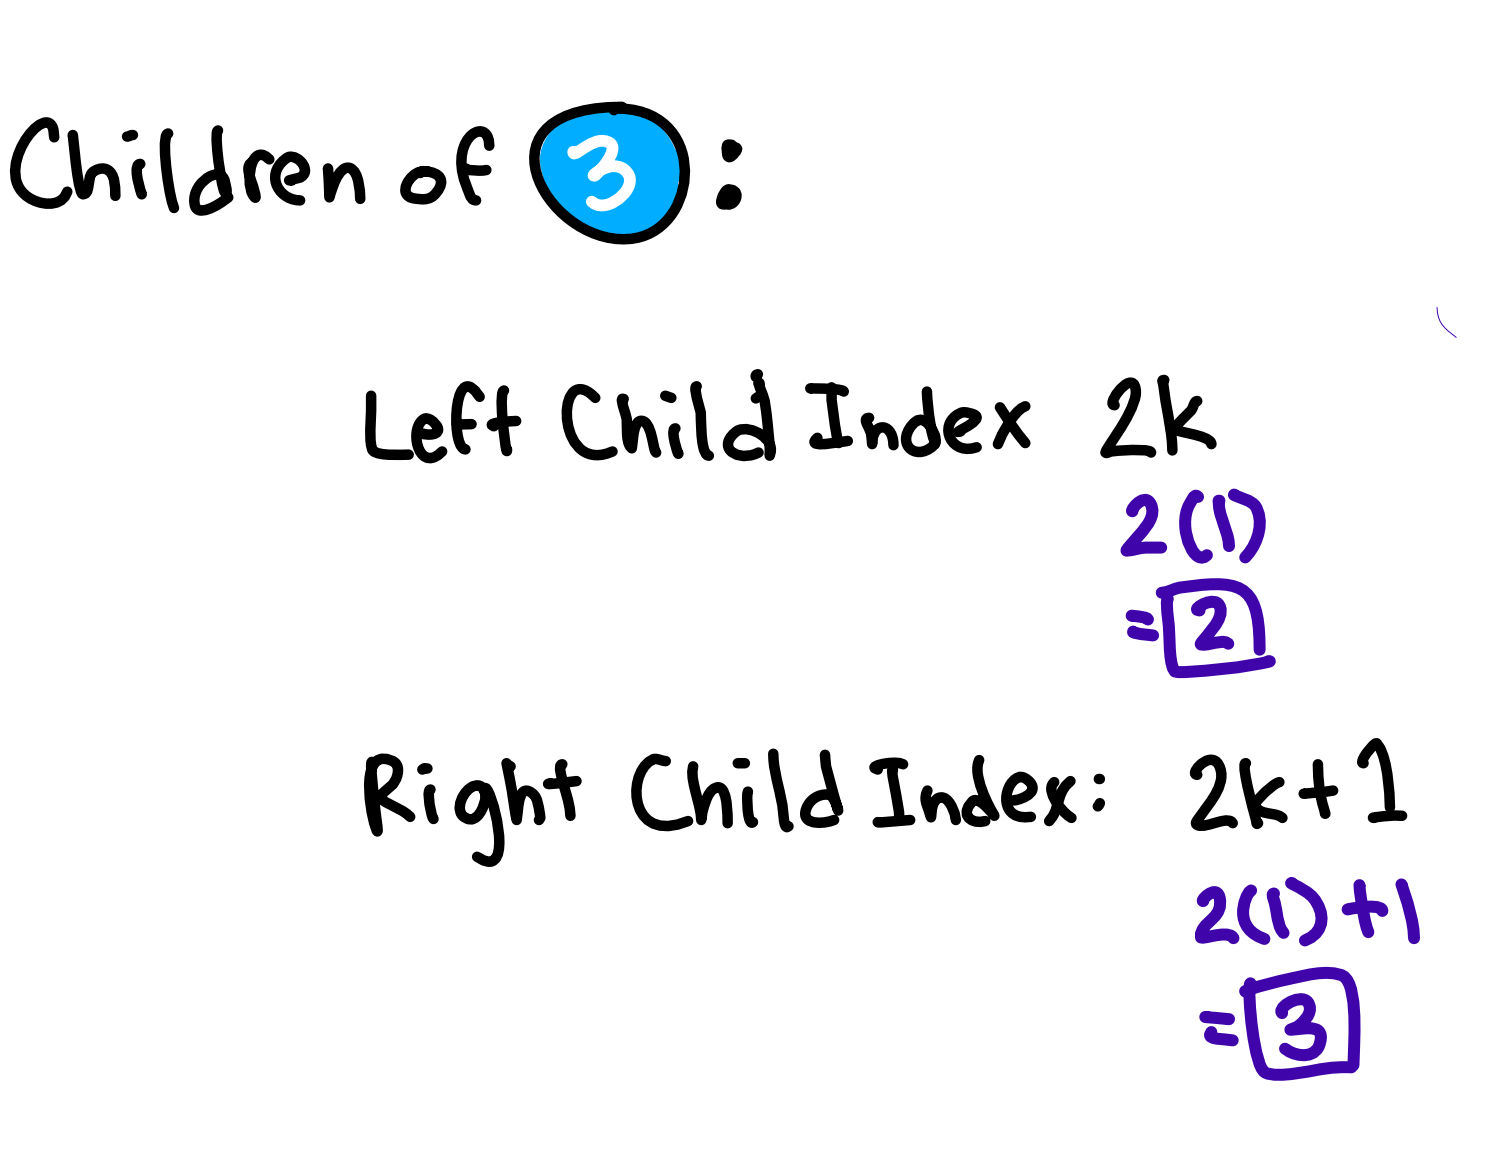 Children of 3:
Left Child Index 2k
2(1)
= 2
Right Child Index: 2k+1
2(1)+1
= 3